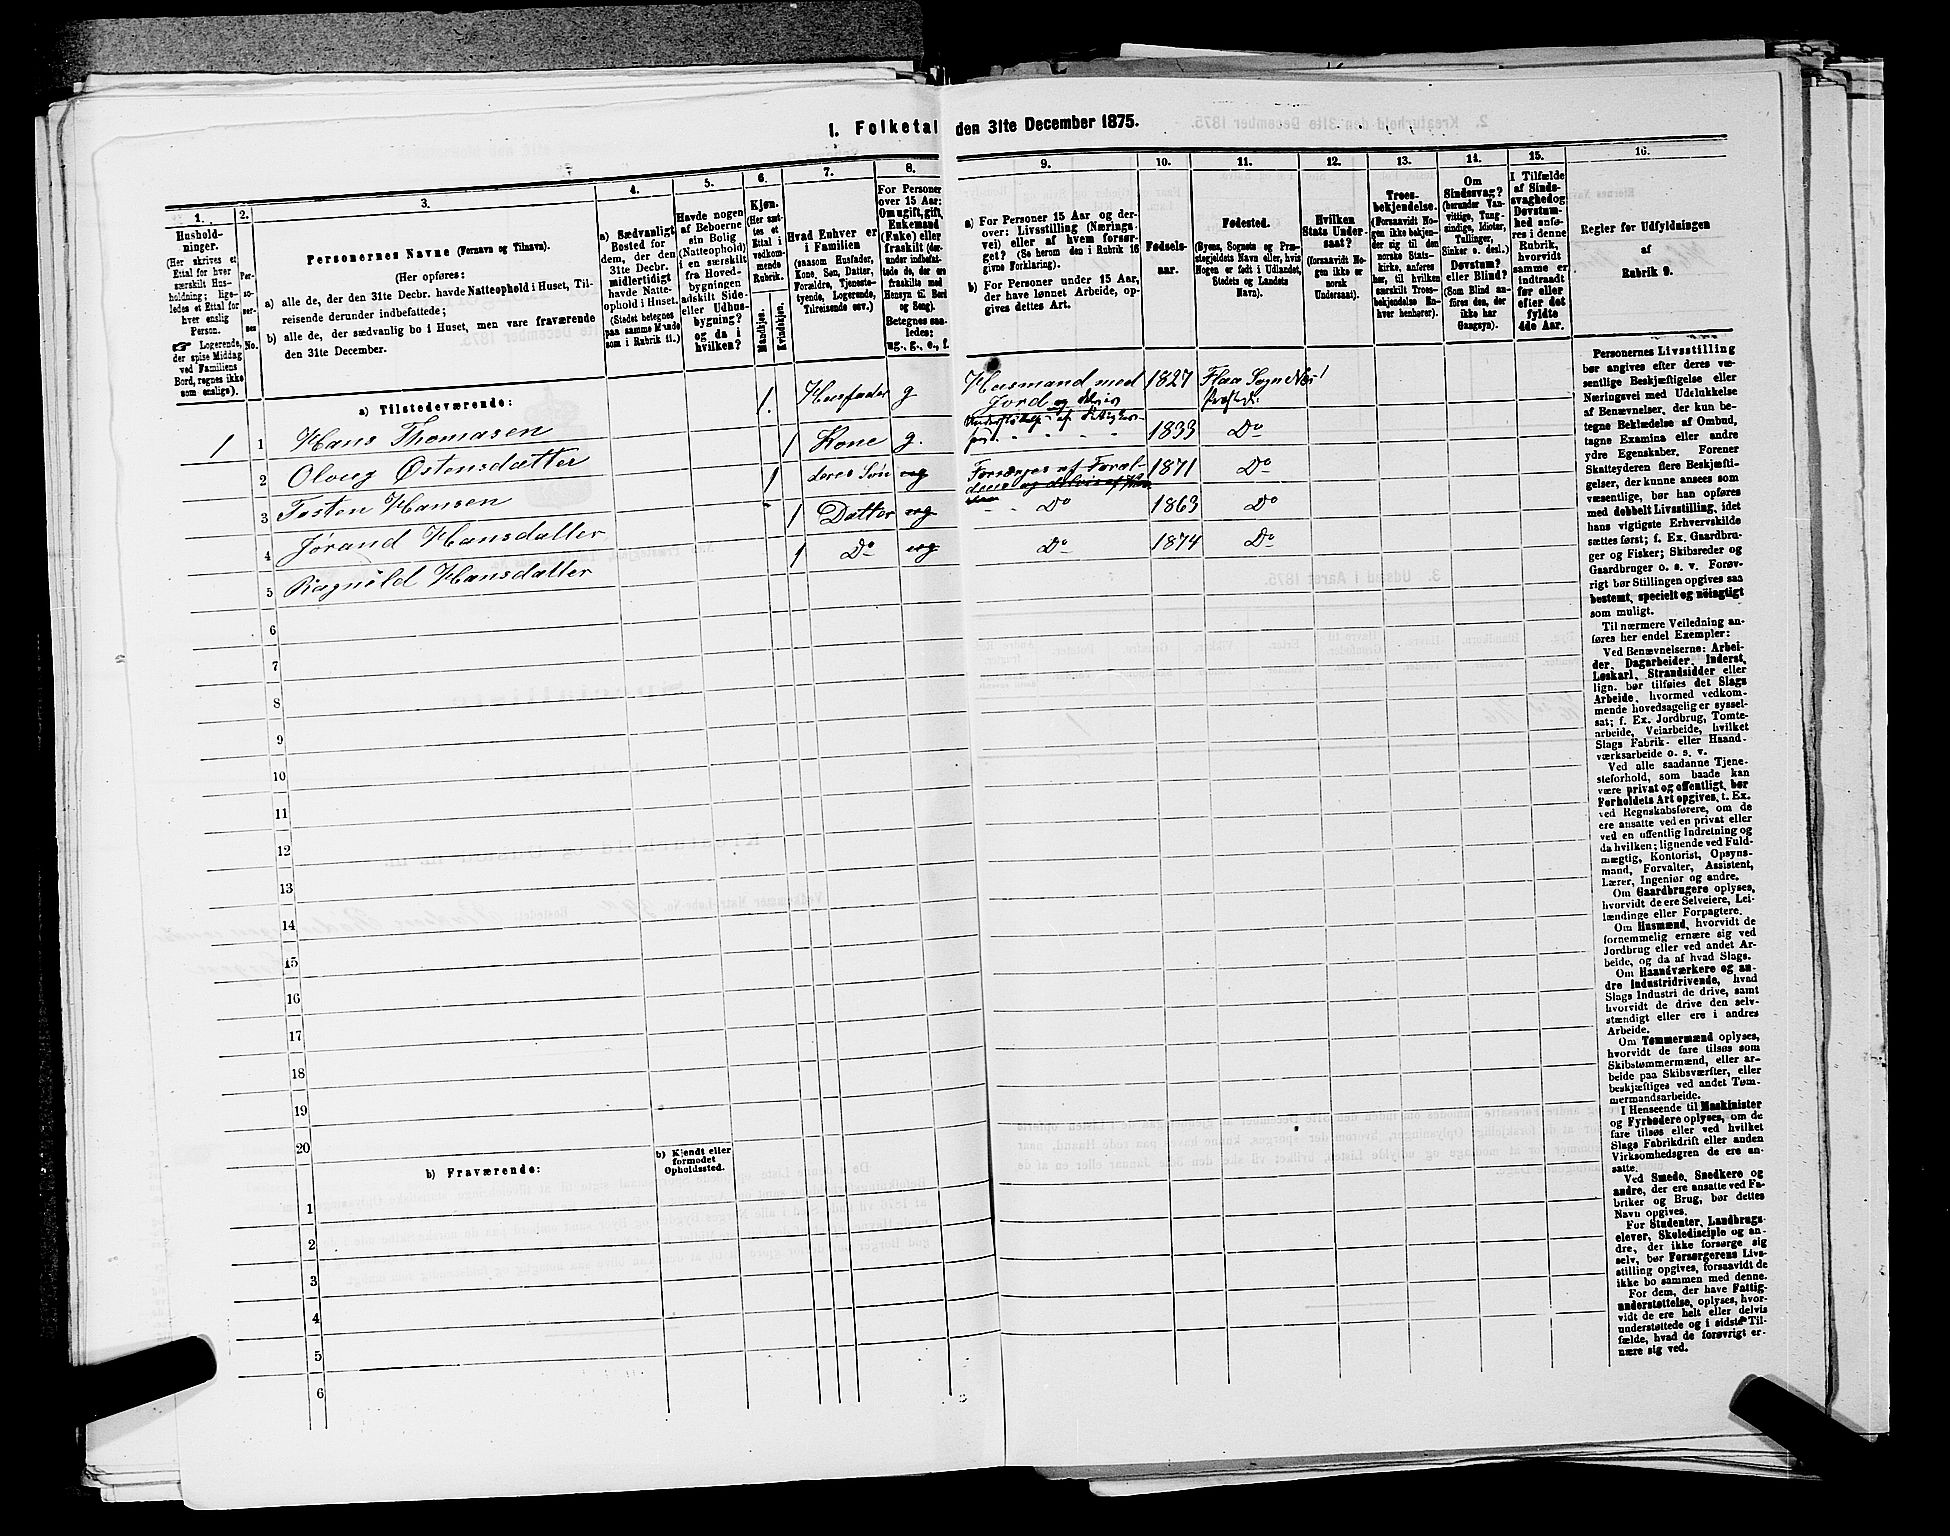 1. Folketal den 31te December 1875.
1.
2.
3.
4.
5.
6.
7.
8.
9.
10.
11.
12.
13.
14.
15.
16.
Husholdninger.
(Her skrives et
Ettal for hver
særskilt Husholdning;
ligeledes et Ettal for
hver enslig
Person.
☞ Logerende,
der spise Middag
ved Familiens
Bord, regnes ikke
som enslige).
Personernes No.
Personernes Navne (Fornavn og Tilnavn).
(Her opføres:
a) alle de, der den 31te Decbr. havde Natteophold i Huset, Tilreisende derunder indbefattede;
b) alle de, der sædvanlig bo i Huset, men vare fraværende
den 31te December.
a) Sædvanligt
Bosted for
dem, der den
31te Decbr.
midlertidigt
havde Natteophold i Huset.
(Stedet betegnes
paa samme Maade
som i Rubrik 11.)
Havde nogen
af Beboerne
sin Bolig
(Natteophold)
i en særskilt
fra Hovedbygningen
adskilt Side-
eller Udhusbygning?
og da i
hvilken?
Kjøn.
(Her sættes et
Ettal i
vedkommende
Rubrik.
Mandkjøn.
Kvindekjøn.
Hvad Enhver er
i Familien
(saasom Husfader,
Kone, Søn, Datter,
Forældre, Tjenestetyende, Logerende,
Tilreisende osv.)
For Personer
over 15 Aar:
Om ugift, gift,
Enkemand
(Enke) eller
fraskilt (derunder indbefattede de, der ere
fraskilte med
Hensyn til Bord
og Seng).
Betegnes saaledes:
ug., g., e., f.
a) For Personer 15 Aar og derover: Livsstilling (Næringsvei) eller af hvem forsørget? (Se herom den i Rubrik 16
givne Forklaring).
b) For Personer under 15 Aar,
der have lønnet Arbeide, opgives dettes Art.
Fødselsaar.
Fødested.
(Byens, Sognets og Præstegjeldets Navn eller, hvis
Nogen er født i Udlandet,
Stedets og Landets
Navn).
Hvilken
Stats Undersaat?
(forsaavidt Nogen ikke er
norsk
Undersaat).
Troesbekjendelse.
(Forsaavidt Nogen ikke bekjender sig til den
norske Statskirke, anføres
her, til hvilken
særskilt Troesbekjendelse Enhver henhører).
Om
Sindssvag?
(herunder Vanvittige, Tungsindige, Idioter,
Tullinger,
Sinker o. desl.)
Døvstum?
eller Blind?
(Som Blind anføres den, der
ikke har
Gangsyn).
I Tilfælde
af Sindssvaghed og
Døvstumhed anføres i denne
Rubrik,
hvorvidt
samme er
indtraadt
før eller
efter det
fyldte
4de Aar.
Regler for Udfyldningen
af
Rubrik 9.
a) Tilstedeværende:
1 1 Hans Thomasen 1. Husfader g Husmand med Jord og delvis 1827 Flaa Sogn Næs Præstgj:
2 Oloug Østensdatter 1 Kone g. 1833 Do
3 Tosten Hansen 1 deres Søn ug Forsørges af Forældrene 1871 Do
4 Jørand Hansdatter 1 Datter ug Do 1863 Do
5 Ragnild Hansdatter 1 Do ug Do 1874 Do
6
7
8
9
10
11
12
13
14
15
16
17
18
19
20
b) Fraværende:
b) Kjendt eller
formodet
Opholdssted.
1
2
3
4
5
6
Personernes Livsstilling
bør angives efter deres væsentlige Beskjæftigelse eller
Næringsvei med Udelukkelse
af Benævnelser, der kun betegne Beklædelse af Ombud,
tagne Examina eller andre
ydre Egenskaber. Forener
Skatteyderen flere Beskjæftigelser, der kunne ansees som
væsentlige, bør han opføres
med dobbelt Livsstilling, idet
hans vigtigste Erhvervskilde
sættes først; f. Ex. Gaardbruger og Fisker; Skibsreder og
Gaardbruger o. s. v. Forøvrigt bør Stillingen opgives saa
bestemt, specielt og nøiagtigt
som muligt.
Til nærmere Veiledning anføres her endel Exempler:
Ved Benævnelserne: Arbeider, Dagarbeider, Inderst,
Løskarl, Strandsidder eller
lign. bør tilføies det Slags
Arbeide, hvormed vedkommende hovedsagelig er sysselsat; f. Ex. Jordbrug, Tomtearbeide, Veiarbeide, hvilket
Slags Fabrik- eller Haandværksarbeide o. s. v.
Ved alle saadanne Tjenesteforhold, som baade kan
være privat og offentligt, bør
Forholdets Art opgives, t. Ex.
ved Regnskabsførere, om de
ere ansatte ved en privat eller
ved en offentlig Indretning og
da hvilken; lignende ved Fuldmægtig, Kontorist, Opsynsmand, Forvalter, Assistent,
Lærer, Ingeniør og andre.
Om Gaardbrugere oplyses,
hvorvidt de ere Selveiere, Leilændinge eller Forpagtere.
Om Husmænd, hvorvidt de
fornemmelig ernære sig ved
Jordbrug eller ved andet Arbeide, og da af hvad Slags.
Om Haandværkere og andre Industridrivende, hvad
Slags Industri de drive, samt
hvorvidt de drive den selvstændigt eller ere i andres
Arbeide.
Om Tømmermænd oplyses,
hvorvidt de fare tilsøs som
Skibstømmermænd, eller arbeide paa Skibsværfter, eller
beskjæftiges ved andet Tømmermandsarbeide.
I Henseende til Maskinister
og Fyrbødere oplyses, om de
fare tilsøs eller ved hvilket
Slags Fabrikdrift eller anden
Virksomhedsgren de ere ansatte.
Ved Smede, Snedkere og
andre, der ere ansatte ved Fabriker og Brug, bør dettes
Navn opgives.
For Studenter, Landbrugselever, Skoledisciple og andre, der ikke forsørge sig
selv, bør Forsørgerens Livsstilling opgives, forsaavidt de
ikke bo sammen med denne.
For dem, der have Fattigunderstøttelse, oplyses, hvorvidt de ere helt eller delvis
understøttede og i sidste Tilfælde, hvad de forøvrigt ernære sig ved.